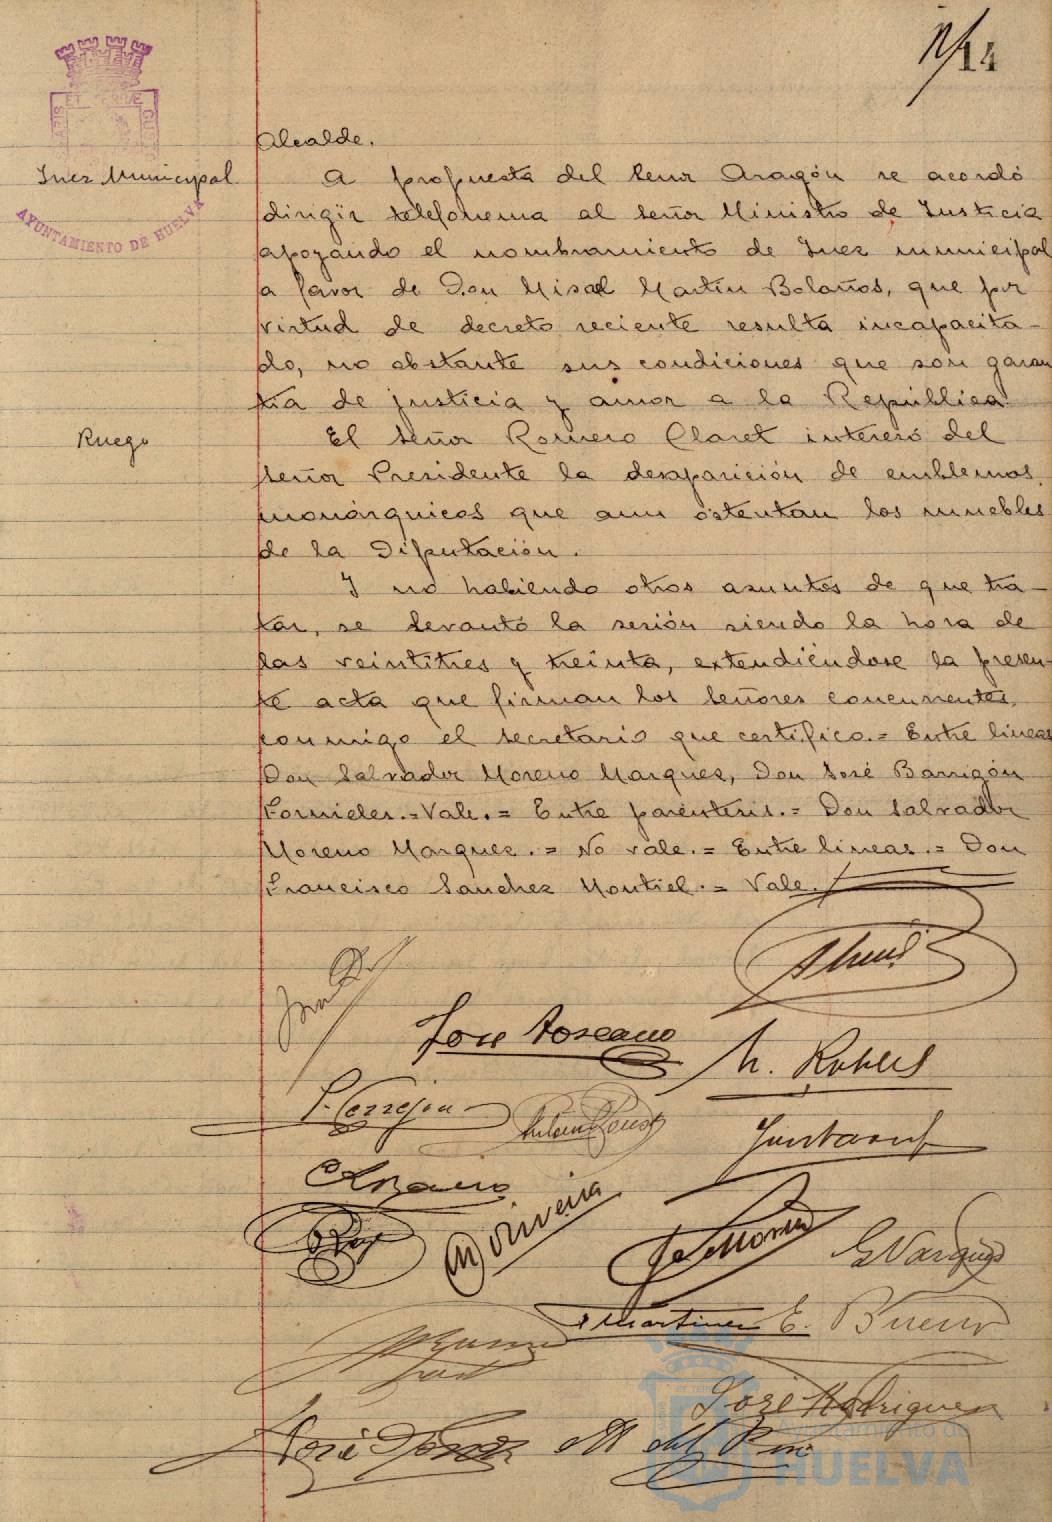 14
Alcalde.
Juez Municipal
A propuesta del señor Aragón se acordó
dirigir telefonema al señor Ministro de Justicia
apoyando el nombramiento de Juez municipal
a favor de Don Misael Martín Bolaños, que por
virtud de decreto reciente resulta incapacita-
do, no obstante sus condiciones que son garan
tia de justicia y amor a la República.
Ruego
El señor Romero Claret interesó del
señor Presidente la desaparición de emblemas
monárquicos que aun ostentan los muebles
de la Diputación.
Y no habiendo otros asuntos de que tra-
tar, se levantó la sesión siendo la hora de
las veintitres y treinta, extendiéndose la presen-
te acta que firman los señores concurrentes
conmigo el secretario que certifico.= Entre lineas
Don Salvador Moreno Marquez, Don José Barrigón
Fornieles.=Vale.= Entre paréntesis.= Don Salvador
Moreno Marquez.= No vale.= Entre lineas.= Don
Francisco Sanchez Montiel.= Vale.
AYUNTAMIENTO DE HUELVA
José Toscano
P. Cerrejón
Oliveira
G Vazquez
Martinez
E. Bueno
José Rodriguez
José
M del Pino
Ayuntamiento de
HUELVA